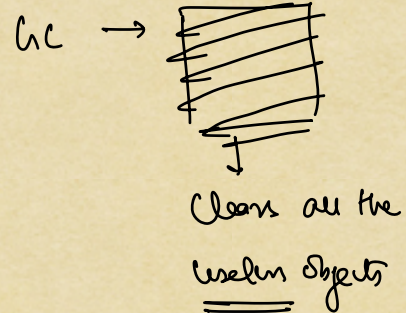 GC →
Clears all the
useless objects